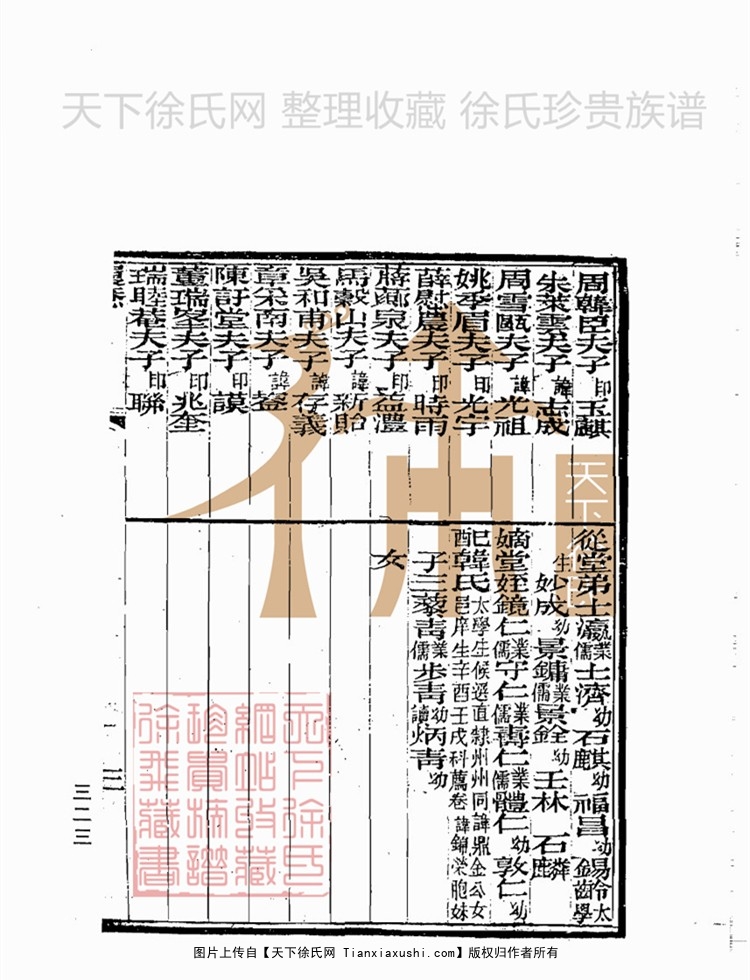 天下徐氏网 整理收藏 徐氏珍贵族谱
周韓臣夫子印玉麒
朱萊雲夫子諱志成
周雪甌夫子諱光祖
姚季眉夫子印光宇
薛慰農夫子印時雨
蔣薌泉夫子印益澧
馬穀山夫子諱新貽
吳和甫夫子諱存義
章采南夫子諱鋆
陳訏堂夫子印謨
董瑞峯夫子印兆奎
瑞睦菴夫子印聯
從堂弟士瀛業儒士濟幼石麒幼福昌幼錫齡太學
生妙成幼景鏞業儒景銓幼壬林石麟
嫡堂姪鏡仁業儒守仁業儒壽仁業儒體仁幼敦仁幼
配韓氏太學生候選直隸州州同諱鼎金公女
邑庠生辛酉壬戌科薦卷諱錦榮胞妹
子三藜青業儒步青幼讀炳青幼
女
三二三
天下徐氏
網站收藏
珍貴族譜
徐華藏書
图片上传自【天下徐氏网 Tianxiaxushi.com】版权归作者所有